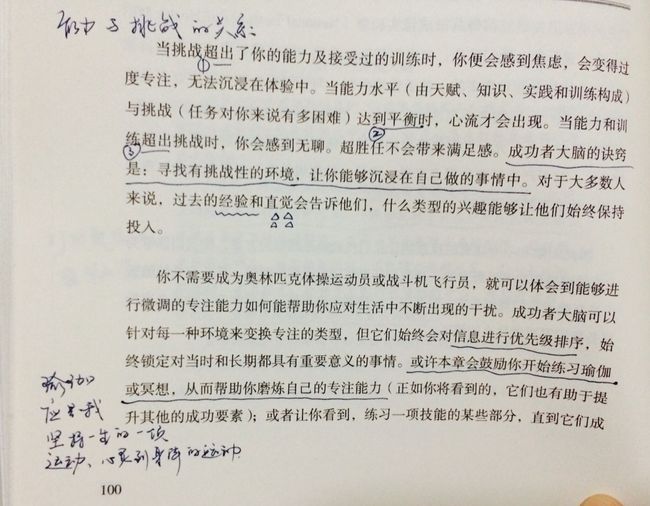 能力与挑战的关系:
当挑战超出了你的能力及接受过的训练时，你便会感到焦虑，会变得过
①
度专注，无法沉浸在体验中。当能力水平（由天赋、知识、实践和训练构成）
与挑战（任务对你来说有多困难）达到平衡时，心流才会出现。当能力和训
②
练超出挑战时，你会感到无聊。超胜任不会带来满足感。成功者大脑的诀窍
③
是：寻找有挑战性的环境，让你能够沉浸在自己做的事情中。对于大多数人
来说，过去的经验和直觉会告诉他们，什么类型的兴趣能够让他们始终保持
投入。
你不需要成为奥林匹克体操运动员或战斗机飞行员，就可以体会到能够进
行微调的专注能力如何能帮助你应对生活中不断出现的干扰。成功者大脑可以
针对每一种环境来变换专注的类型，但它们始终会对信息进行优先级排序，始
终锁定对当时和长期都具有重要意义的事情。或许本章会鼓励你开始练习瑜伽
或冥想，从而帮助你磨炼自己的专注能力（正如你将看到的，它们也有助于提
升其他的成功要素）；或者让你看到，练习一项技能的某些部分，直到它们成
瑜伽
应是我
坚持一生的一项
运动、心灵到身体的运动
100